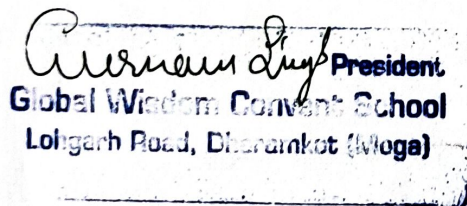 Gurnam Singh President
Global Wisdom Convent School
Lohgarh Road, Dharamkot (Moga)